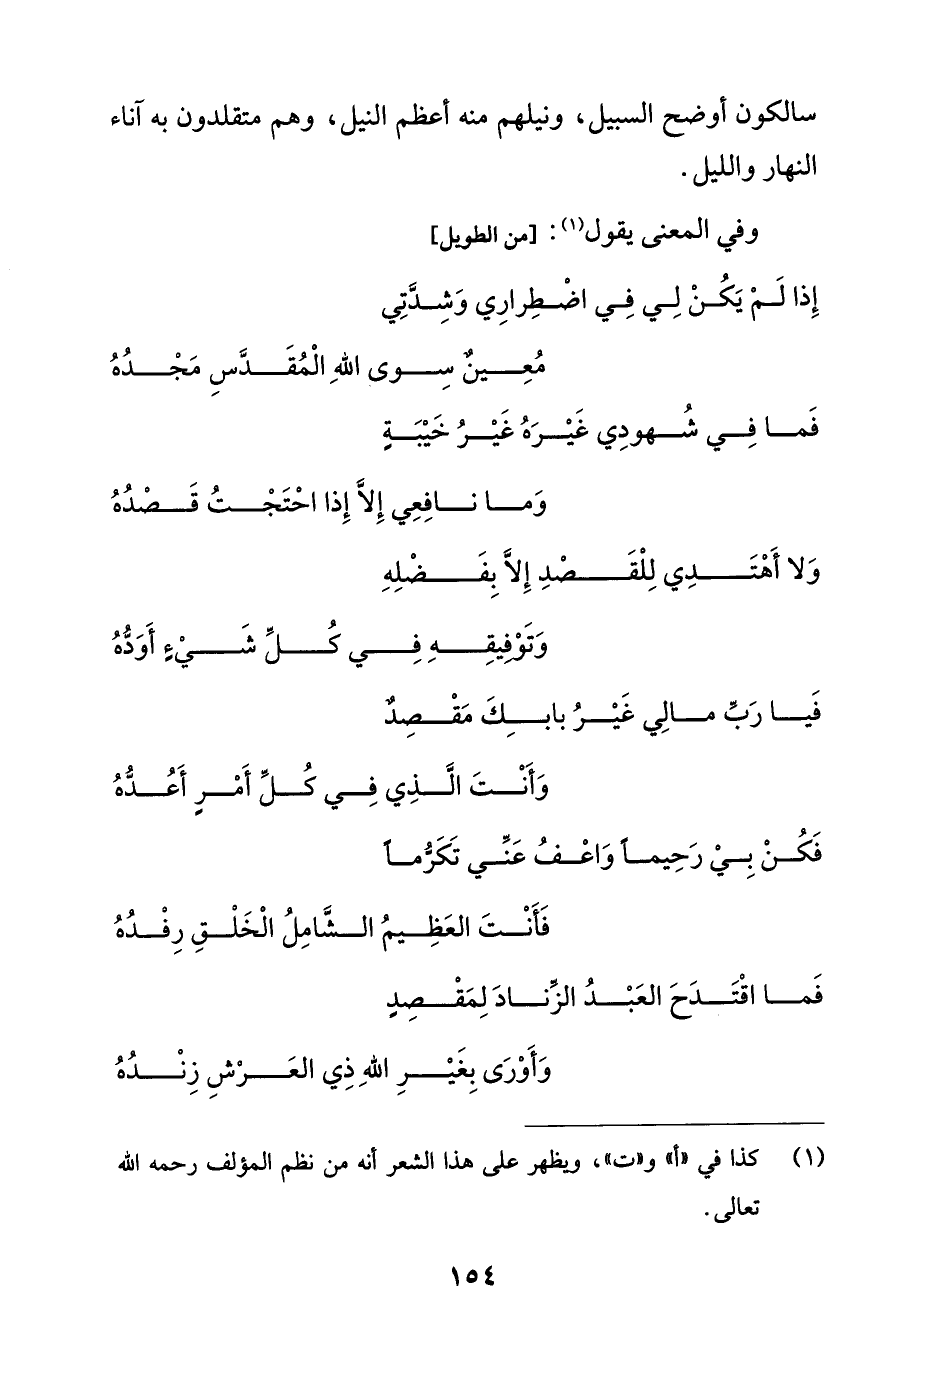 سالكون أوضح السبيل، ونيلهم منه أعظم النيل، وهم متقلدون به آناء
النهار والليل.
وفي المعنى يقول(١): [من الطويل]
إِذا لَمْ يَكُنْ لِي فِي اضْطِرارِي وَشِدَّتِي
مُعِينٌ سِوى اللهِ الْمُقَدَّسِ مَجْدُهُ
فَما فِي شُهودِي غَيْرَهُ غَيْرُ خَيْبَةٍ
وَما نافِعِي إِلاَّ إِذا احْتَجْتُ قَصْدُهُ
وَلا أَهْتَدِي لِلْقَصْدِ إِلاَّ بِفَضْلِهِ
وَتَوْفِيقِهِ فِي كُلِّ شَيْءٍ أَوَدُّهُ
فَيا رَبِّ مالِي غَيْرُ بابِكَ مَقْصِدٌ
وَأَنْتَ الَّذِي فِي كُلِّ أَمْرٍ أَعُدُّهُ
فَكُنْ بِيْ رَحِيماً وَاعْفُ عَنِّي تَكَرُّماً
فَأَنْتَ العَظِيمُ الشَّامِلُ الْخَلْقِ رِفْدُهُ
فَما اقْتَدَحَ العَبْدُ الزِّنادَ لِمَقْصِدٍ
وَأَوْرَى بِغَيْرِ اللهِ ذِي العَرْشِ زِنْدُهُ
(١) كذا في «أ» و«ت»، ويظهر على هذا الشعر أنه من نظم المؤلف رحمه الله
تعالى.
١٥٤